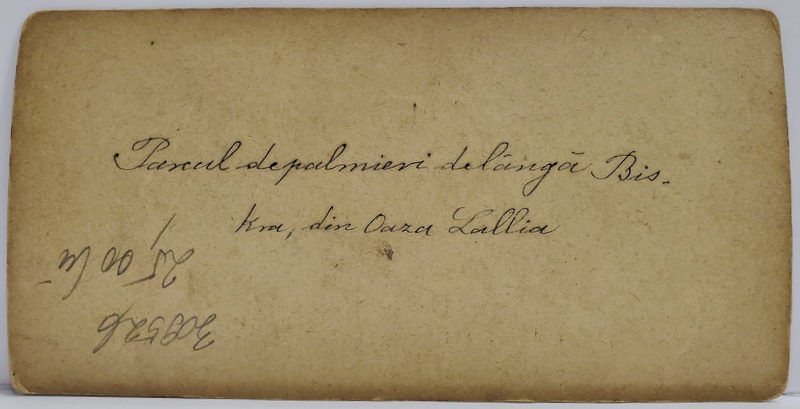 Parcul de palmieri de lângă Bis-
kra, din Oaza Lallia
25,00 lei